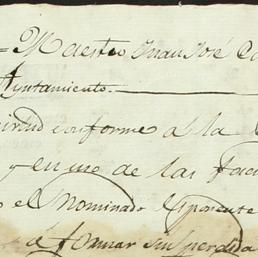 = Maestro Juan José
Ayuntamiento.
conforme á la
y en uso de las
el Nominado Exponente
á formar sin perdida